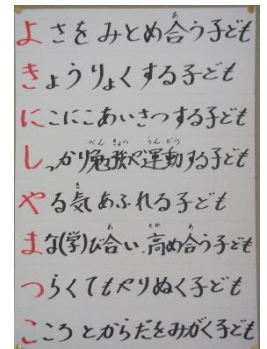 よさをみとめ合う子ども
きょうりょくする子ども
にこにこあいさつする子ども
しっかり勉強や運動する子ども
やる気あふれる子ども
まな(学)び合い、高め合う子ども
つらくてもやりぬく子ども
こころとからだをみがく子ども